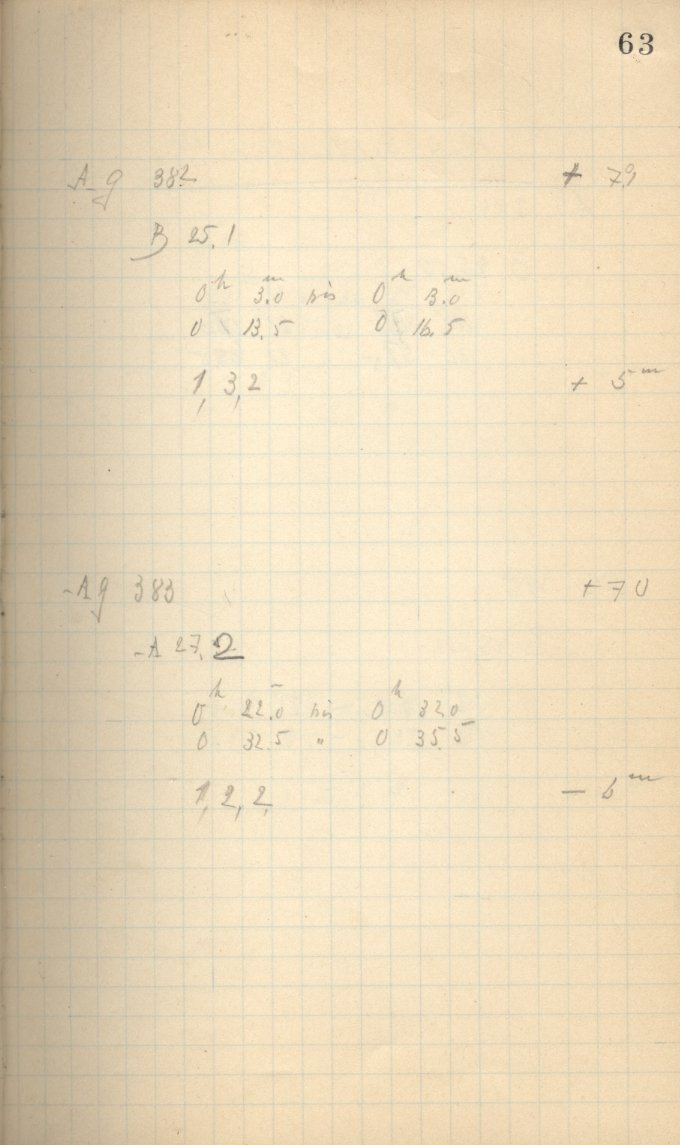 63
Ag 382 + 79
B 25.1
0h 3.0m bis 0h 13.0m
0 13.5 0 16.5
1, 3, 2 + 5m
Ag 383 + 70
A 27.2
0h 22.0 bis 0h 32.0
0 32.5 " 0 35.5
1, 2, 2, — 6m